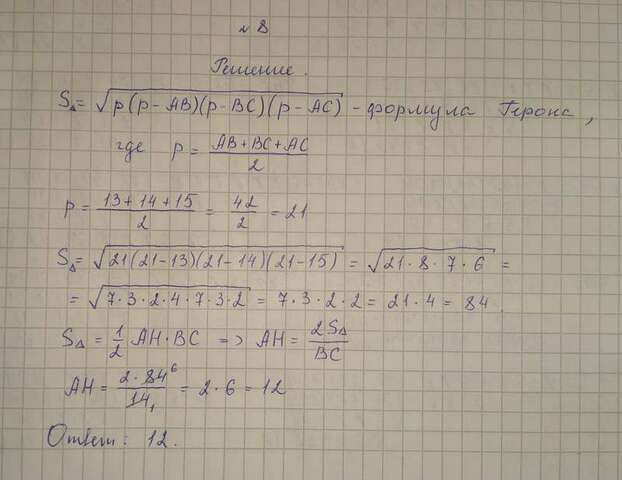 № 8
Решение.
S△ = √p(p - AB)(p - BC)(p - AC) - формула Герона,
где p = (AB + BC + AC)/2
p = (13 + 14 + 15)/2 = 42/2 = 21
S△ = √21(21-13)(21-14)(21-15) = √21·8·7·6 =
= √7·3·2·4·7·3·2 = 7·3·2·2 = 21·4 = 84
S△ = 1/2 AH·BC => AH = 2S△/BC
AH = 2·84⁶/14₁ = 2·6 = 12
Ответ: 12.